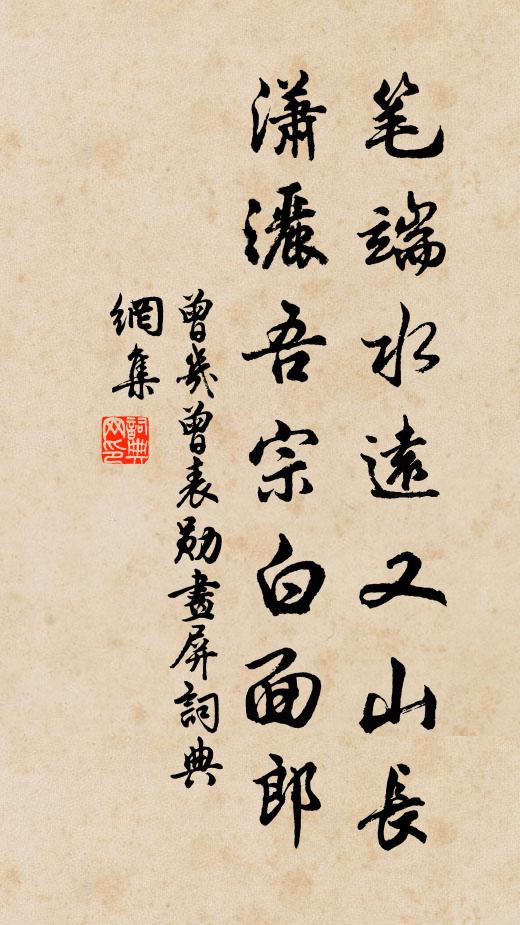 笔端水遠又山長
瀟灑吾宗白面郎
曾幾曾表勛畫屏詞典
網集
詞典
网印